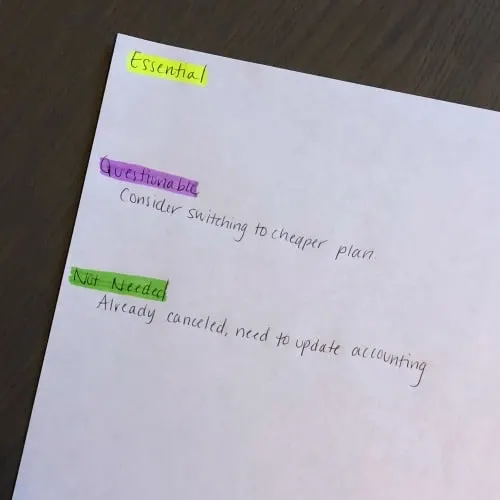 Essential
Questionable
Consider switching to cheaper plan.
Not Needed
Already canceled, need to update accounting